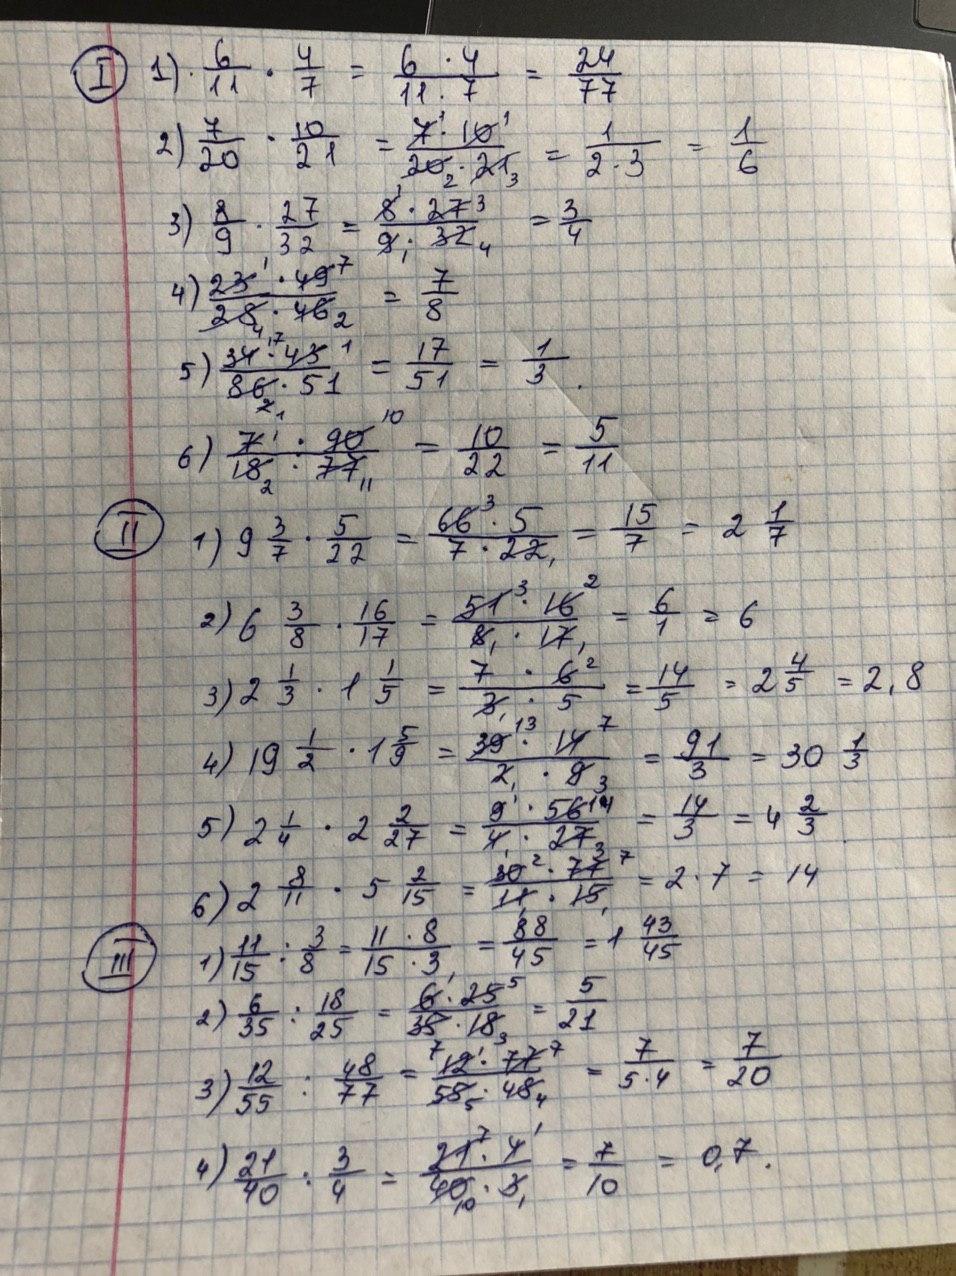 I 1) 6/11 · 4/7 = 6 · 4/11 · 7 = 24/77
2) 7/20 · 10/21 = 7¹ · 10¹/20₂ · 21₃ = 1/2·3 = 1/6
3) 8/9 · 27/32 = 8¹ · 27³/9₁ · 32₄ = 3/4
4) 23¹ · 49⁷/28₄ · 46₂ = 7/8
5) 34¹⁷ · 43¹/86₂₁ · 51 = 17/51 = 1/3.
6) 7¹ · 90¹⁰/18₂ · 77₁₁ = 10/22 = 5/11
II 1) 9 3/7 · 5/22 = 66³ · 5/7 · 22₁ = 15/7 = 2 1/7
2) 6 3/8 · 16/17 = 51³ · 16²/8₁ · 17₁ = 6/1 = 6
3) 2 1/3 · 1 1/5 = 7 · 6²/3₁ · 5 = 14/5 = 2 4/5 = 2,8
4) 19 1/2 · 1 5/9 = 39¹³ · 14⁷/2₁ · 9₃ = 91/3 = 30 1/3
5) 2 1/4 · 2 2/27 = 9¹ · 56¹⁴/4₁ · 27₃ = 14/3 = 4 2/3
6) 2 8/11 · 5 2/15 = 30² · 77⁷/11₁ · 15₁ = 2 · 7 = 14
III 1) 11/15 : 3/8 = 11 · 8/15 · 3 = 88/45 = 1 43/45
2) 6/35 : 18/25 = 6 · 25⁵/35 · 18₃ = 5/21
3) 12/55 : 48/77 = ⁷12¹ · 77⁷/55₅ · 48₄ = 7/5·4 = 7/20
4) 21/40 : 3/4 = 21⁷ · 4¹/40₁₀ · 3₁ = 7/10 = 0,7.